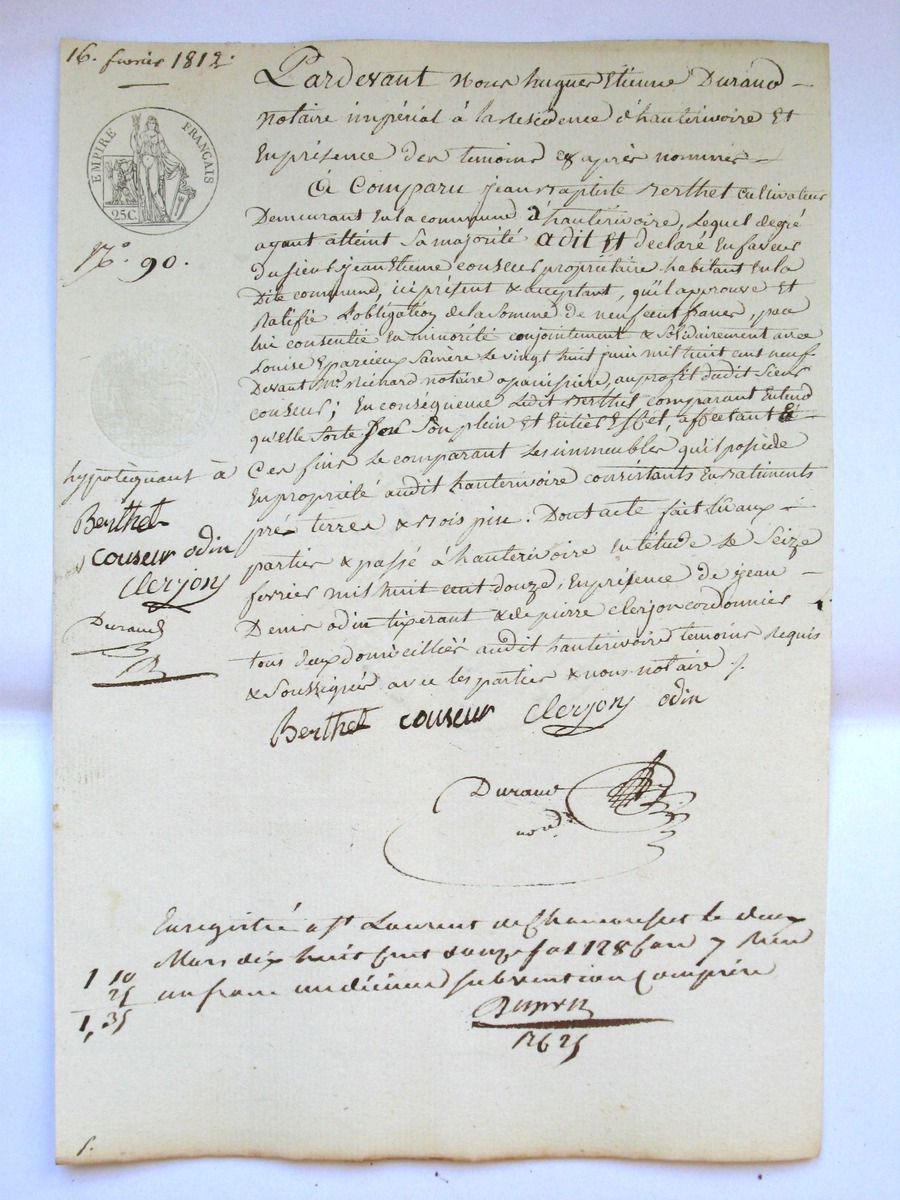 16. fevrier 1812.
EMPIRE FRANÇAIS
25C.
N.º 90.
Pardevant Nous hugues Etienne Durand
Notaire impérial à la residence d'hauterivoire Et
En présence des temoins cy après nommés
A Comparu jean Baptiste Berthet Cultivateur
Demeurant En la commune d'hauterivoire, Lequel de gré
ayant atteint Sa majorité a dit Et declaré En faveur
Du sieur jean Etienne couseur propriétaire habitant En la
Dite commune, ici présent & acceptant, qu'il approuve Et
Ratifie L'obligation de la somme de neuf cent francs, par
lui consentie En minorité conjointement & solidairement avec
Louise Eparcieux Sa mère Le vingt huit juin mil huit cent neuf
Devant Me notaire a panissière, au profit dudit Sieur
couseur; En conséquence Ledit Berthet comparant Entend
qu'elle Sorte Son plein Et Entier Effet, affectant &
hypotéquant à
Ces fins Le comparant Les immeubles qu'il possède
En propriété audit hauterivoire consistants En Batiments
prés terres & Bois pin. Dont acte fait Lu aux
parties & passé à hauterivoire En Etude Le Seize
fevrier mil huit cent douze, En présence de jean
Denis odin tixerant & de pierre clerjon cordonnier
tous deux domiciliés audit hauterivoire temoins Requis
& Soussignés avec les parties & nous notaire /.
Berthet
couseur odin
Clerjon
Durand
Berthet couseur Clerjon odin
Durand
Enregistré a St Laurent de Chamousset le deux
Mars dix huit cent douze fol 128 Case 7 Reçu
un franc un décime subvention Comprise
1 10
25
1,35